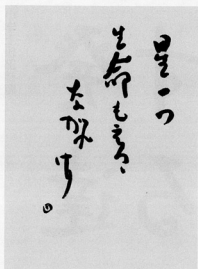 星一つ
生命もえつゝ
ながれけり